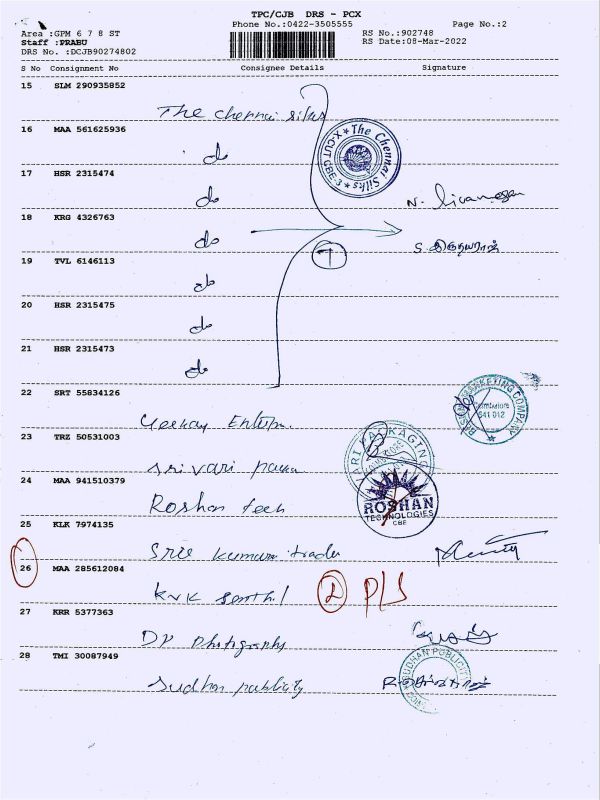 TPC/CJB DRS - PCX
Phone No.:0422-3505555 Page No.:2
Area :GPM 6 7 8 ST RS No.:902748
Staff :PRABU RS Date:08-Mar-2022
DRS No. :DCJB90274802
S No Consignment No Consignee Details Signature
15 SLM 290935852
The Chennai Silks
16 MAA 561625936
do
The Chennai Silks
X-CUT CBE-3
17 HSR 2315474
do
18 KRG 4326763
do
7
S. இருதயராஜ்
19 TVL 6146113
do
20 HSR 2315475
do
21 HSR 2315473
do
22 SRT 55834126
MARKETING COMPANY
Coimbatore
641 012
23 TRZ 50531003
Sri vari
VARI PACKAGING
24 MAA 941510379
Roshan tech
ROSHAN
TECHNOLOGIES
CBE
25 KLK 7974135
Sree kumaran trader
26 MAA 285612084
KVK Senthil D P/S
27 KRR 5377363
DP Photography
28 TMI 30087949
Sudhan publicity
SUDHAN PUBLICITY